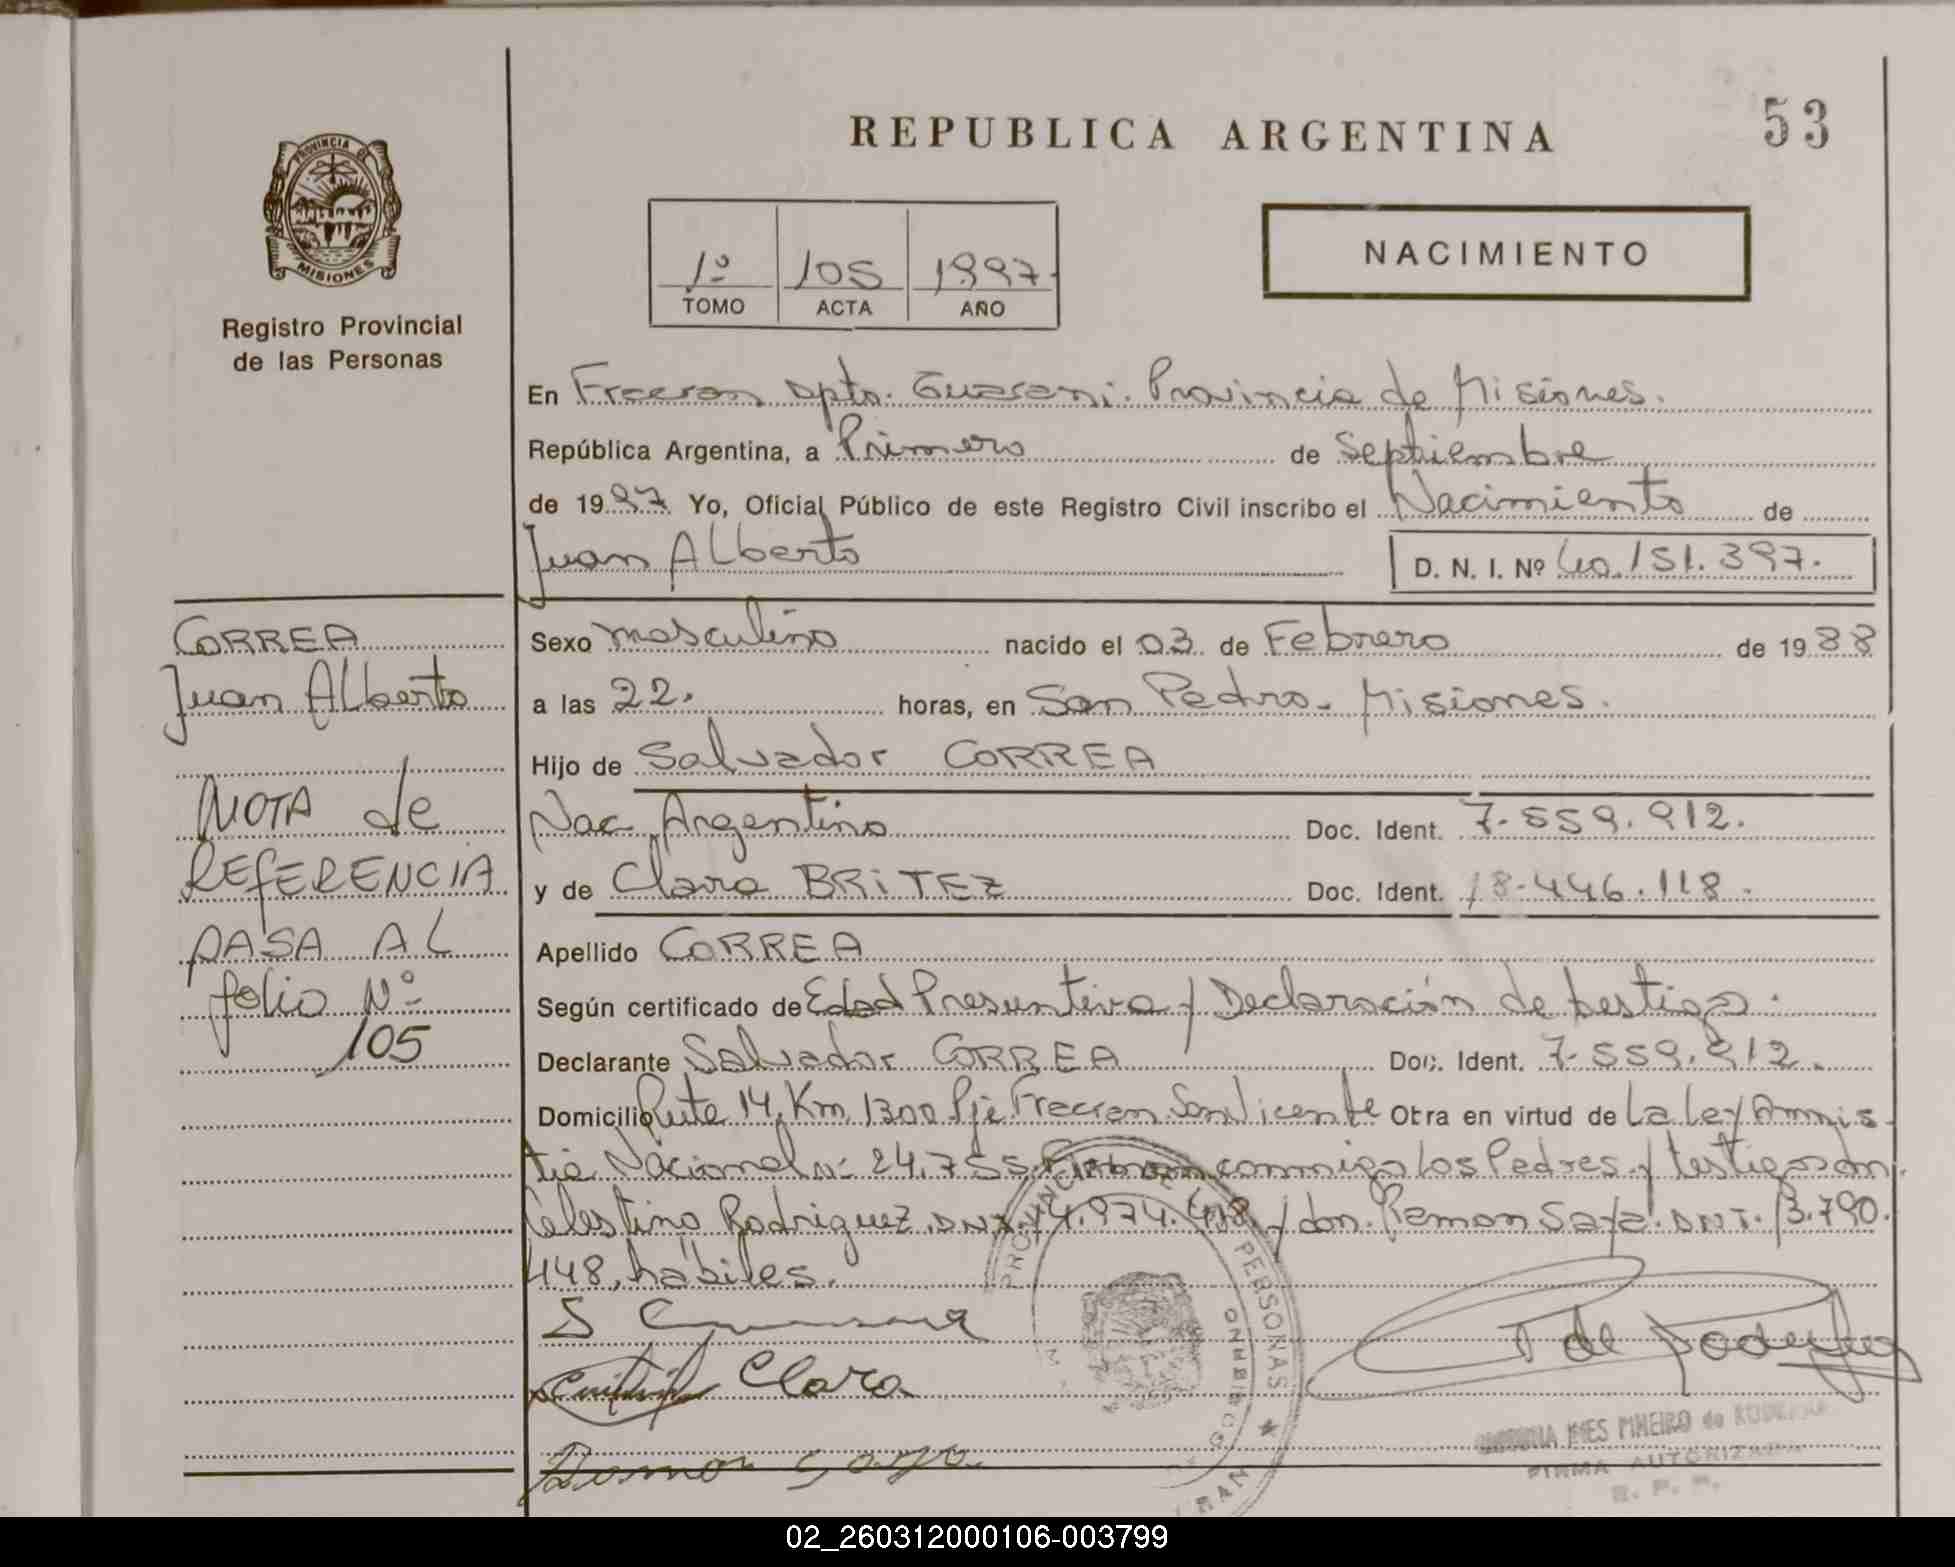 REPUBLICA ARGENTINA
53
PROVINCIA DE
MISIONES
Registro Provincial
de las Personas
1º 105 1997.
TOMO ACTA AÑO
NACIMIENTO
En Fracran Dpto. Guarani. Provincia de Misiones.
República Argentina, a Primero de Septiembre
de 1997 Yo, Oficial Público de este Registro Civil inscribo el Nacimiento de
Juan Alberto D. N. I. Nº 40.151.397.
CORREA
Juan Alberto
NOTA de
REFERENCIA
PASA AL
folio Nº
105
Sexo masculino nacido el 03 de Febrero de 1988
a las 22. horas, en San Pedro. Misiones.
Hijo de Salvador CORREA
Nac. Argentino Doc. Ident. 7.559.912.
y de Clara BRITEZ Doc. Ident. 18.446.118.
Apellido CORREA
Según certificado de Edad Presuntiva y Declaración de testigo.
Declarante Salvador CORREA Doc. Ident. 7.559.912.
Domicilio Ruta 14 Km 1300 Pje Fracran San Vicente Otra en virtud de La Ley Amnis
tia Nacional Nº 24.755. Firman conmigo los Padres y testigos don
Celestino Rodriguez DNI. 14.974.418 y don. Ramon Saya. DNI. 13.790.
448, hábiles.
S
Clara
Ramon Saya
PERSONAS
INES PINEIRO de
FIRMA AUTORIZADA
R. P. P.
02_260312000106-003799